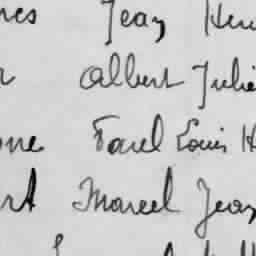 nes Jean Hen
r Albert Julie
one Paul Louis H
rt Marcel Jean